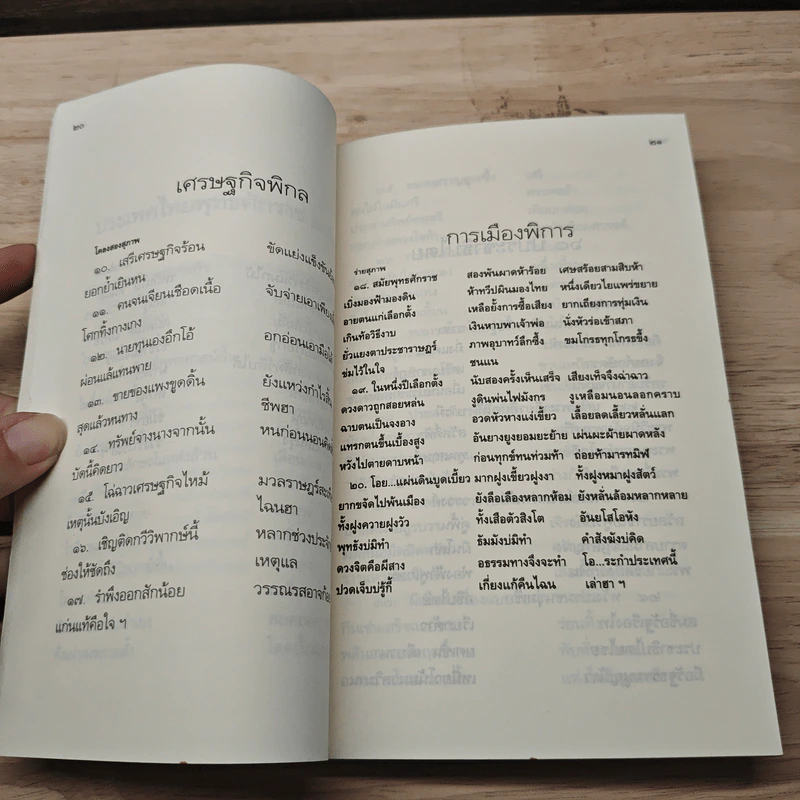 ๒๐
เศรษฐกิจพิกล
โคลงสองสุภาพ
๑๐. เสรีเศรษฐกิจร้อน ขัดแย่งแข็งขัน
ยอกย้ำเยินหน
๑๑. คนจนเจียนเชือดเนื้อ จับจ่ายเอาเพียง
โศกทิ้งกางเกง
๑๒. นายทุนเองอึกโอ้ อกอ่อนเอามือ
ผ่อนแล้แทนพาย
๑๓. ขายของแพงขูดดิ้น ยังแหว่งกำไรสิ้น
สุดแล้วหนทาง ชีพฮา
๑๔. ทรัพย์จางนางจากนั้น หนก่อนนอน
บัดนี้คิดยาว
๑๕. โฉ่ฉาวเศรษฐกิจไหม้ มวลราษฎร์
เหตุนั้นบังเอิญ ไฉนฮา
๑๖. เชิญติดกวีวิพากษ์นี้ หลากช่วงประจำ
ช่องให้ชัดถึง เหตุแล
๑๗. รำพึงออกสักน้อย วรรณรสอาจ
แก่นแท้คือใจ ฯ
๒๑
การเมืองพิการ
ร่ายสุภาพ
๑๘. สมัยพุทธศักราช สองพันผาดห้าร้อย เศษสร้อยสามสิบห้า
เบิ่งมองฟ้ามองดิน ห้าทวีปผินมองไทย หนึ่งเดียวไยแพร่ขยาย
อายตนแก่เลือกตั้ง เหลือยั้งการซื้อเสียง ยากเถียงการทุ่มเงิน
เกินท้อวิธีงาบ เงินหาบพาเจ้าพ่อ นั่งหัวร่อเข้าสภา
ยั่วแยงตาประชาราษฎร์ ภาพอุบาทว์ลึกซึ้ง ขมโกรธทุกโกรธขึ้ง
ข่มไว้ในใจ ชนแน
๑๙. ในหนึ่งปีเลือกตั้ง นับสองครั้งเห็นเสร็จ เสียงเท็จจึงฉ่าฉาว
ดวงดาวถูกสอยหล่น งูดินพ่นไฟมังกร งูเหลือมนอนลอกคราบ
ฉาบตนเป็นจงอาง อวดหัวหางแง่เขี้ยว เลื้อยลดเลี้ยวหลั่นแลก
แทรกตนขึ้นเบื้องสูง อันยางยูงยอมยะย้าย เผ่นผะผ้ายผาดหลัง
หวังไปตายดาบหน้า ก่อนทุกข์ทนท่วมท้า ถ่อยท้ามารทมิฬ
๒๐. โอย...แผ่นดินบูดเบี้ยว มากฝูงเขี้ยวฝูงงา ทั้งฝูงหมาฝูงสัตว์
ยากขจัดไปพ้นเมือง ยังลือเลืองหลากห้อม ยังหลั่นล้อมหลากหลาย
ทั้งฝูงควายฝูงวัว ทั้งเสือตัวสิงโต อันยโสโอหัง
พุทธังบ่มิทำ ธัมมังบ่มิทำ คำสังฆังบ่คิด
ดวงจิตคือผีสาง อธรรมทางจึงจะทำ โอ...ระกำประเทศนี้
ปวดเจ็บบ่รู้กี้ เกี่ยงแก้คืนไฉน เล่าฮา ฯ